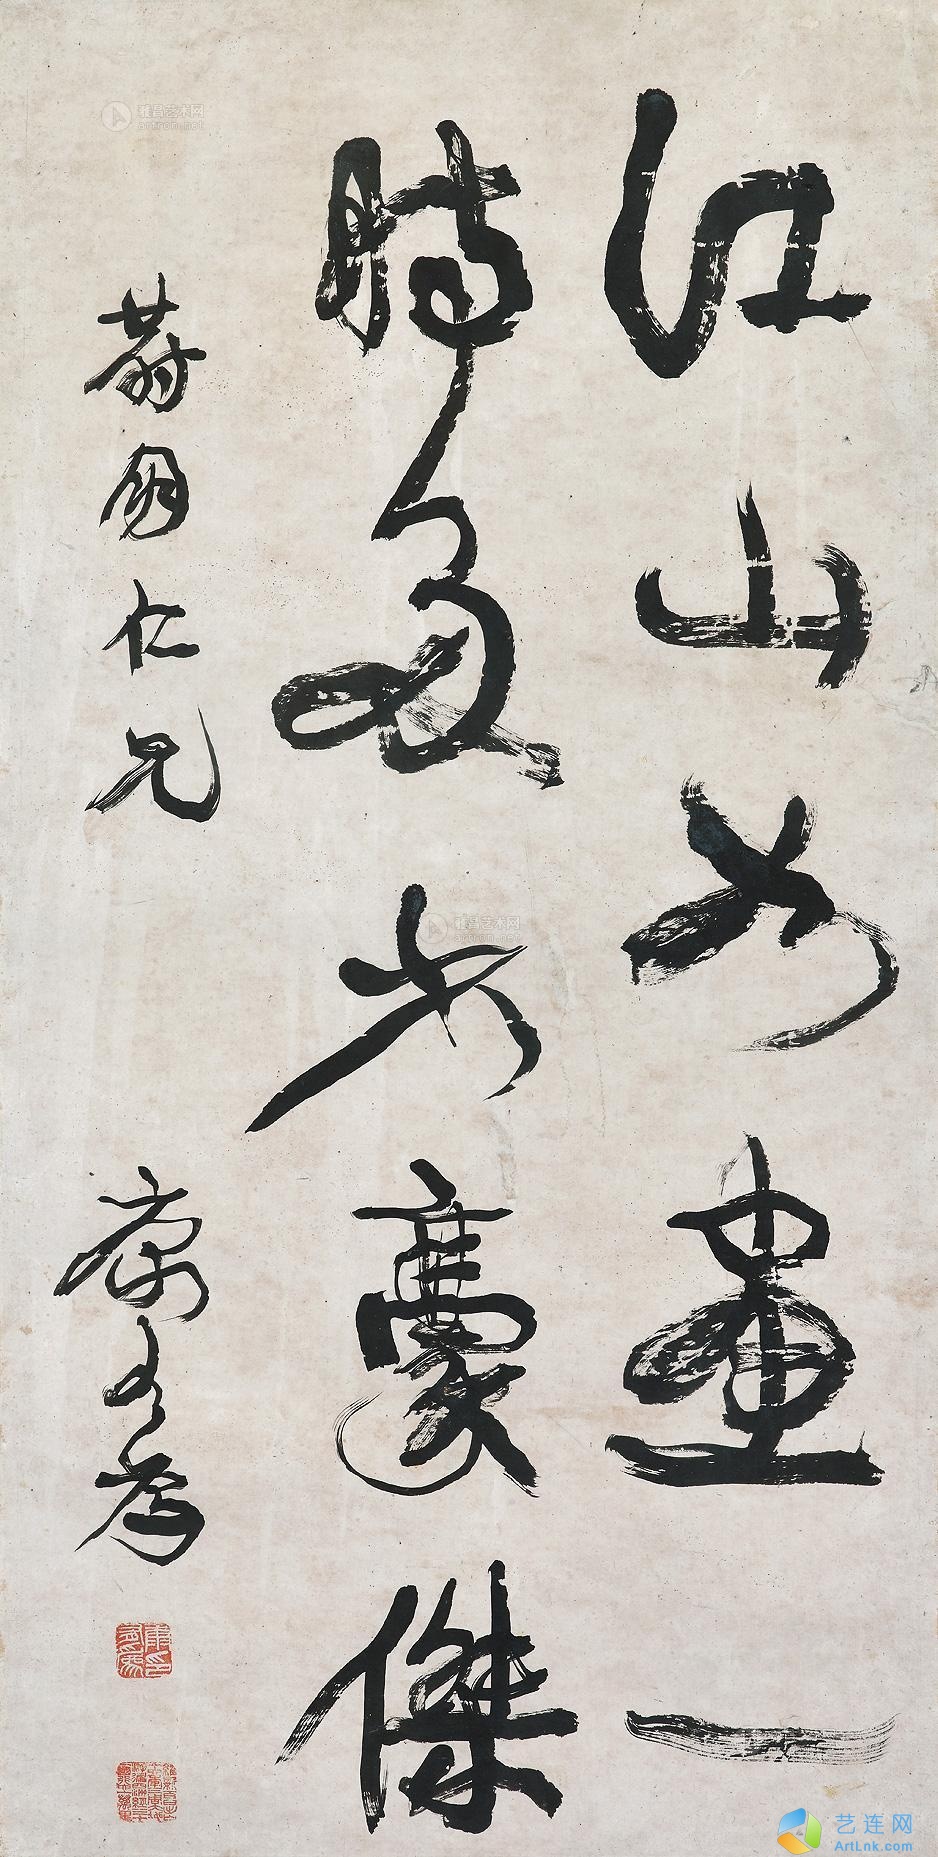 江山如畫一
時多少豪傑
仁兄
康有為
康有為印
雅昌艺术网
artron.net
雅昌艺术网
artron.net
艺连网
ArtLnk.com